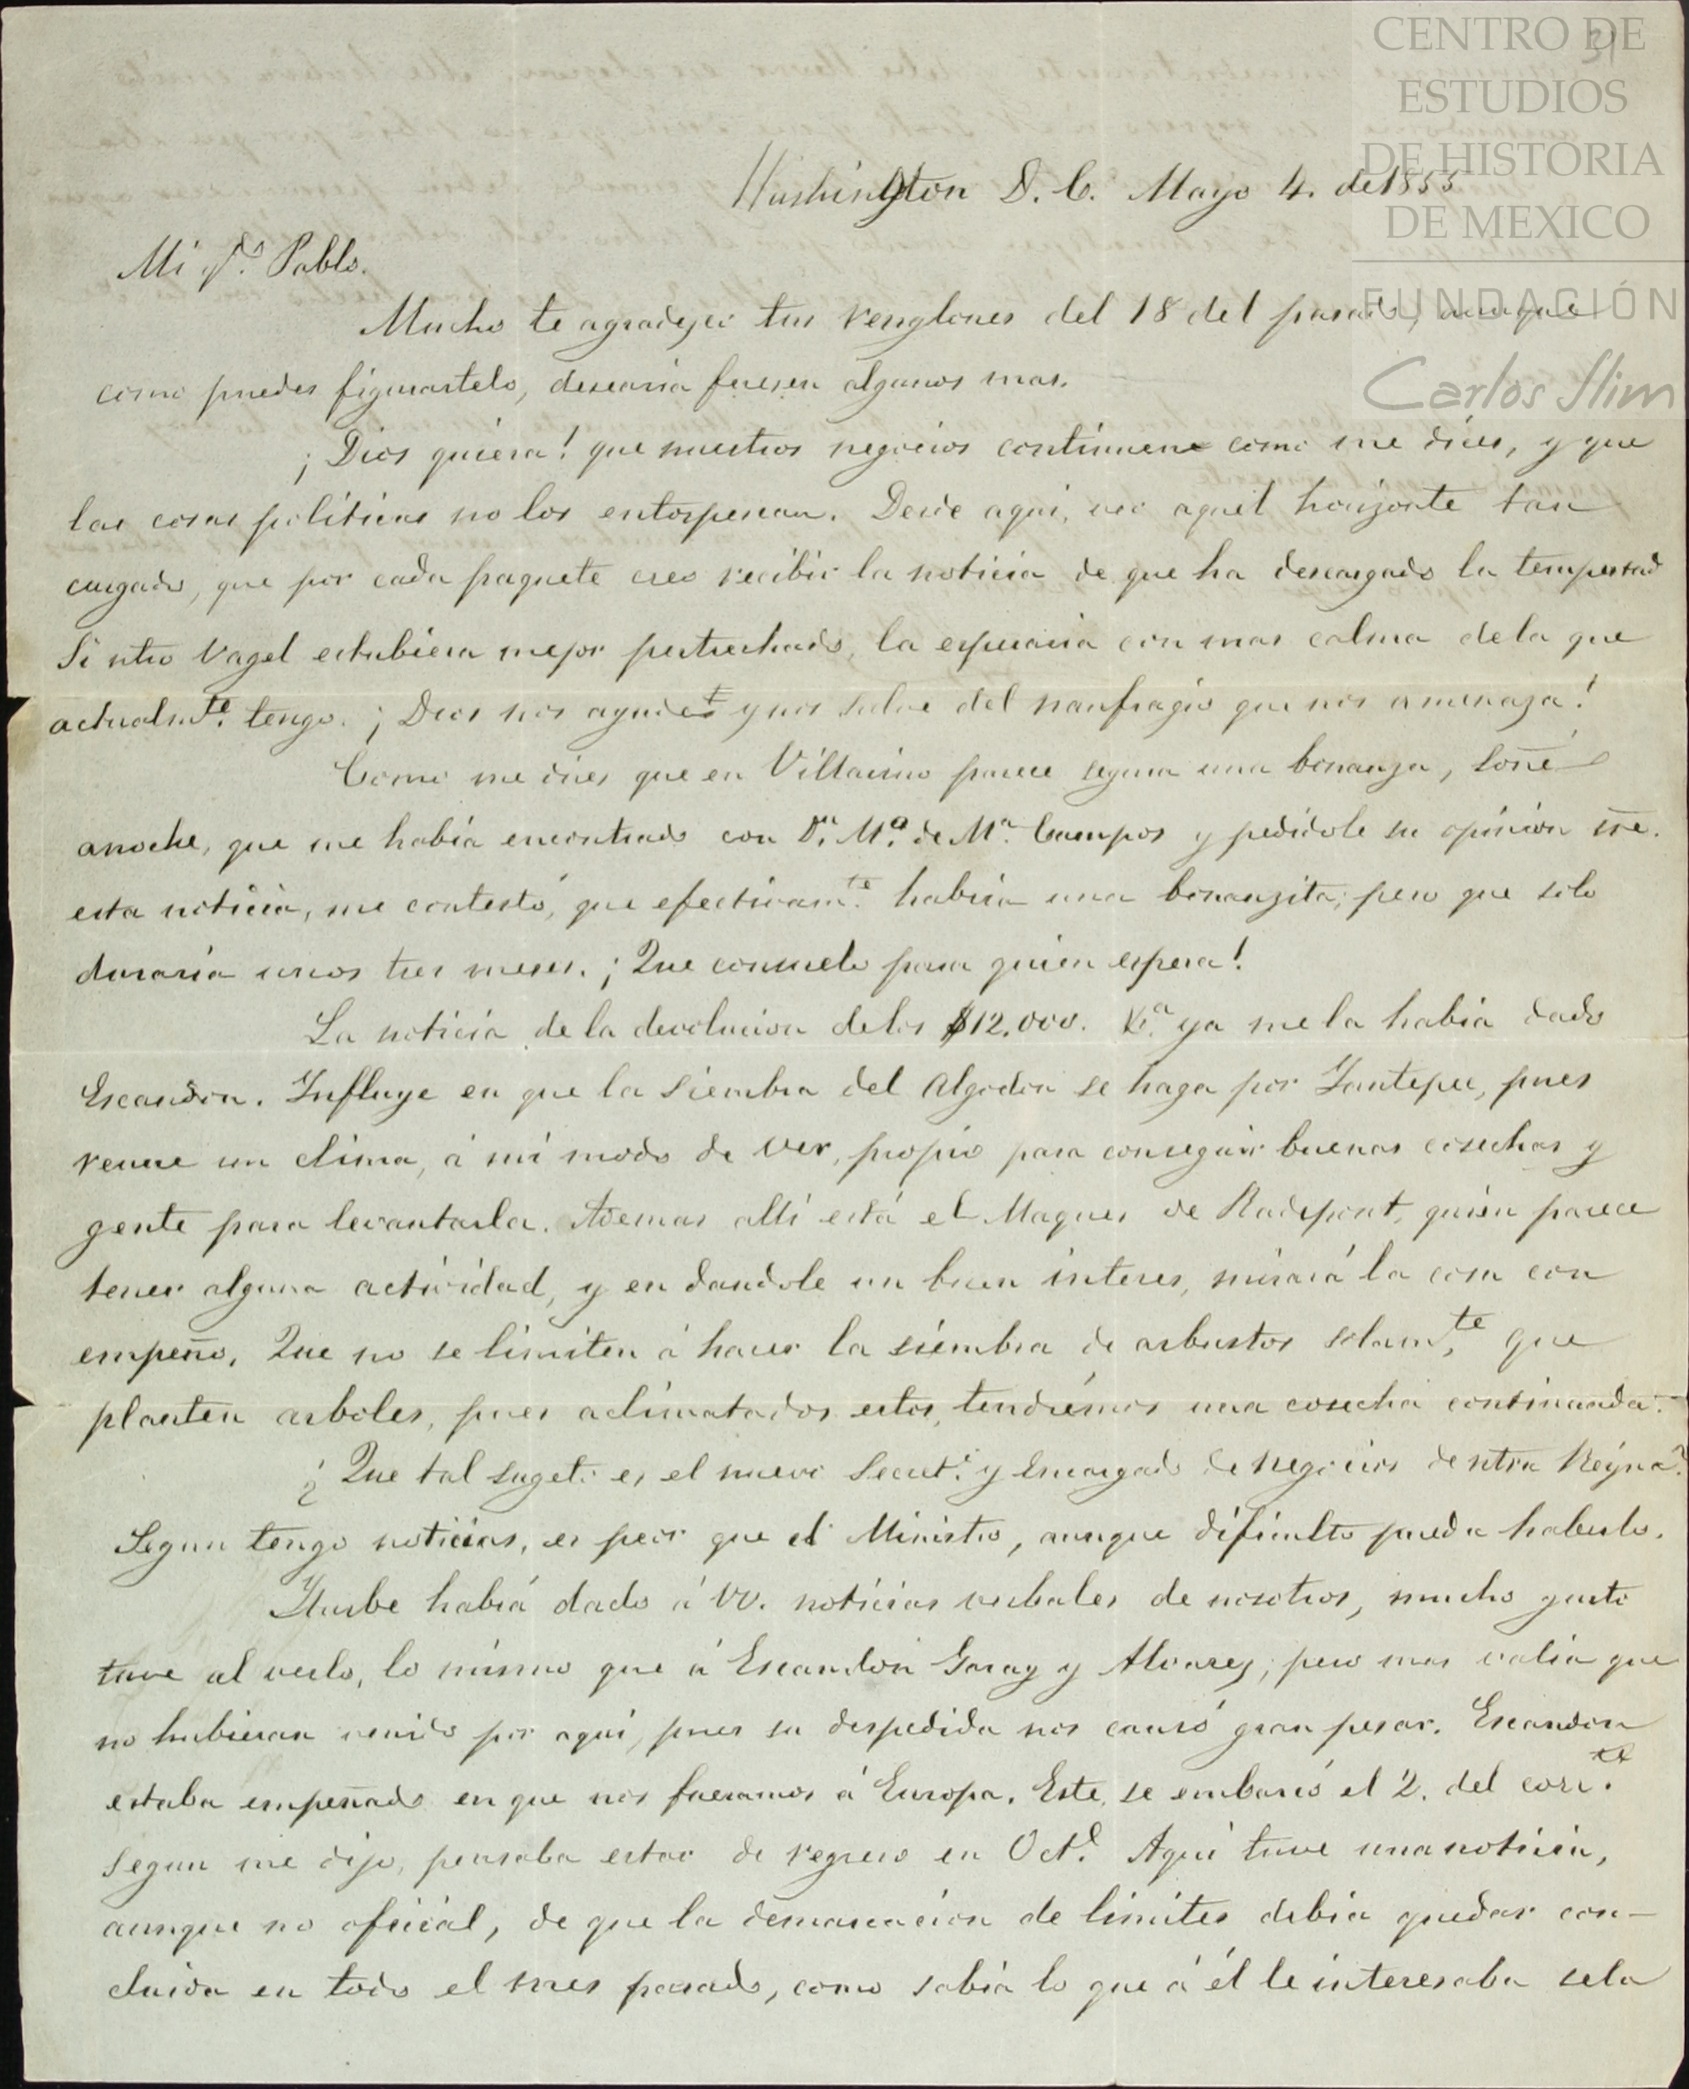 CENTRO DE
ESTUDIOS
DE HISTORIA
DE MEXICO
FUNDACIÓN
Carlos Slim
31
Washington D. C. Mayo 4. de 1855
Mi qdo. Pablo.
Mucho te agradezco tus renglones del 18 del pasado, aunque
como puedes figurartelo, desearia fuesen algunos mas.
¡Dios quiera! que nuestros negocios continuen como me dices, y que
las cosas politicas no los entorpescan. Desde aqui, veo aquel horizonte tan
cargado, que por cada paquete creo recibir la noticia de que ha descargado la tempestad
Si ntro Vagel estubiera mejor pertrechado, la esperaria con mas calma de la que
actualmte. tengo. ¡Dios nos ayude y nos salve del naufragio que nos amenaza!
Como me dices que en Villarino parece segura una bonanza, soñé
anoche, que me habia encontrado con Dn. Ma. de Ma. Campos y pedidole su opinion sre.
esta noticia, me contestó, que efectivamte. habria una bonanzita; pero que solo
duraria unos tres meses. ¡Que consuelo para quien espera!
La noticia de la devolucion de los $12.000. ya me la habia dado
Escandon. Influye en que la siembra del Algodon se haga por Yautepec, pues
reune un clima, á mi modo de ver, propio para conseguir buenas cosechas y
gente para levantarla. Ademas alli está el Maques de Radepont, quien parece
tener alguna actividad, y en dandole un buen interes, mirará la cosa con
empeño. Que no se limiten á hacer la siembra de arbustos solamte, que
planten arboles, pues aclimatados estos, tendrémos una cosecha continuada.
¿Que tal sugeto es el nuevo Secreto. y Encargado de negocios de ntra Reyna?
Segun tengo noticias, es peor que el Ministro, aunque dificulto pueda haberlo.
Yturbe habrá dado á VV. noticias verbales de nosotros, mucho gusto
tuve al verlo, lo mismo que á Escandon Garay y Alvarez; pero mas valia que
no hubieran venido por aqui, pues su despedida nos causó gran pesar. Escandon
estaba empeñado en que nos fueramos á Europa. Este se embarcó el 2. del corrte.
Segun me dijo, pensaba estar de regreso en Oct.e Aqui tuve una noticia,
aunque no oficial, de que la demarcacion de limites debia quedar con-
cluida en todo el mes pasado, como sabia lo que á él le interesaba se la